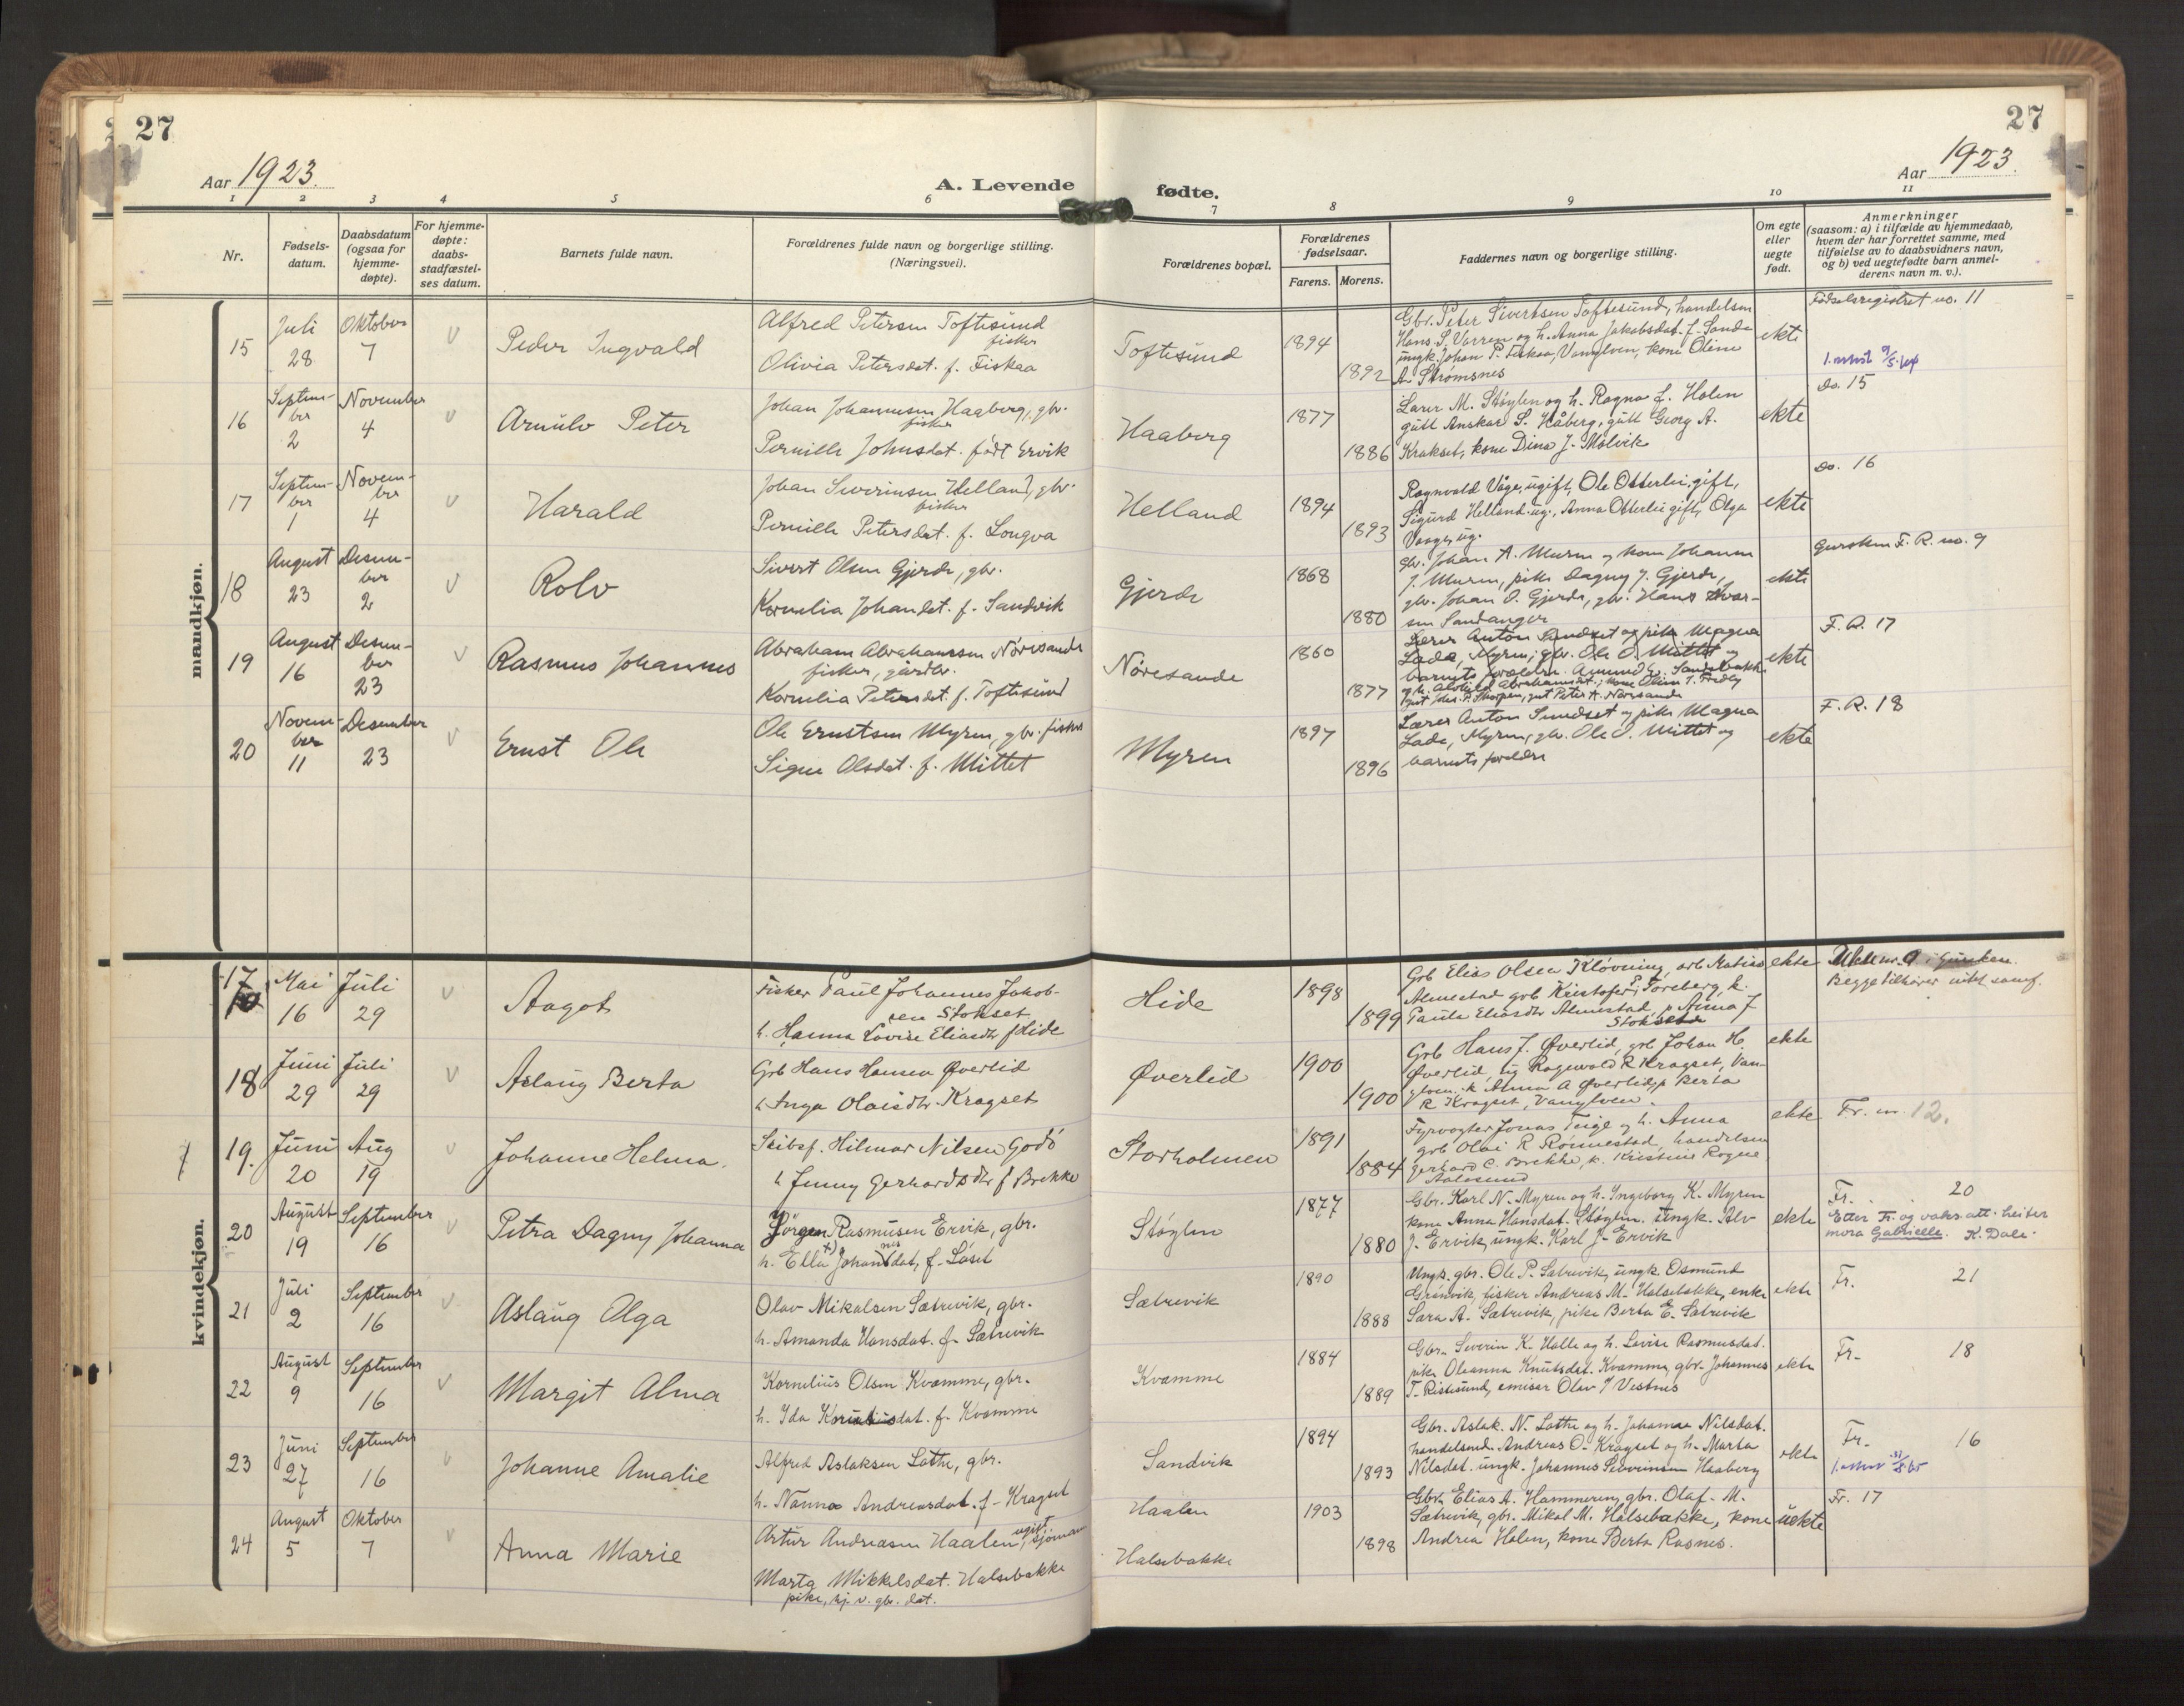 27
27
Aar 1923.
A. Levende fødte.
Aar 1923.
1 2 3 4 5 6 7 8 9 10 11
Nr.
Fødsels-
datum.
Daabsdatum
(ogsaa for
hjemme-
døpte).
For hjemme-
døpte:
daabs-
stadfæstel-
ses datum.
Barnets fulde navn.
Forældrenes fulde navn og borgerlige stilling.
(Næringsvei).
Forældrenes bopæl.
Forældrenes
fødselsaar.
Farens. Morens.
Faddernes navn og borgerlige stilling.
Om egte
eller
uegte
født.
Anmerkninger
(saasom: a) i tilfælde av hjemmedaab,
hvem der har forrettet samme, med
tilføielse av to daabsvidners navn,
og b) ved uegtefødte barn anmel-
derens navn m. v.).
mandkjøn.
15
Juli
28
Oktober
7
Peder Ingvald
Alfred Petersen Toftesund
fisker
Olivia Petersdat. f. Fiskaa
Toftesund
1894
1892
Gbr. Peter Sivertsen Toftesund, handelsm
Hans S. Vorren og h. Anna Jakobsdat. f. Sande
ungk. Johan P. Fiskaa, Vanylven, kone Oline
A. Strømsnes
ekte
Fødselsregistret no. 11
16
Septem-
ber
2
November
4
Arnulv Peter
Johan Johannesen Haaberg, gbr.
fisker
Pernille Johnsdat. født Ervik
Haaberg
1877
1886
Lærer M. Støylen og h. Ragna f. Holen
gutt Anskar S. Håberg, gutt Georg A.
Krakset, kone Dina J. Molvik
ekte
Do. 15
17
Septem-
ber
1
Novem-
ber
4
Harald
Johan Severinsen Helland, gbr.
fisker
Pernille Petersdat. f. Longva
Helland
1894
1893
Ragnvald Våge, ugift, Ole Otterlei, gift,
Sigurd Helland. ug., Anna Otterlei gift, Olga
Vaage, ug.
ekte
Do. 16
18
August
23
Desem-
ber
2
Rolv
Sivert Olsen Gjerde, gbr.
Kornelia Johansdat. f. Sandvik
Gjerde
1868
1880
gbr. Johan A. Muren og kone Johanne
J. Muren, pike Dagny J. Gjerde,
gbr. Johan O. Gjerde, gbr. Hans Ivar-
sen Sandanger
ekte
Gursken F. R. no. 9
19
August
16
Desem-
ber
23
Rasmus Johannes
Abraham Abrahamsen Nøresande
fisker, gårdbr.
Kornelia Petersdat. f. Toftesund
Nøresande
1860
1877
Lærer Anton Sundset og pike Magna
Lade, Myren; gbr. Ole O. Mittet og
barnets foreldre.
ekte
F. R. 17
20
Novem-
ber
11
Desember
23
Ernst Ole
Ole Ernstsen Myren, gbr. fisker
Signe Olsdat. f. Mittet
Myren
1897
1896
Lærer Anton Sundset og pike Magna
Lade, Myren, gbr. Ole O. Mittet og
barnets foreldre
ekte
F. R. 18
kvindekjøn.
17
Mai
16
Juli
29
Aagot
Fisker Paul Johannes Jakob-
sen Stokset
h. Hanna Lovise Eliasdtr f Hide
Hide
1898
1899
Grb Elias Olsen Kløvning, arb Matias
Almestad grb Kristofer P. Toreberg, k.
Paula Eliasdtr Almestad, p Anna J
Stokset
ekte
Begge tilhører utst samf.
18
Juni
29
Juli
29
Aslaug Berta
Grb Hans Hansen Øverlid
h Inga Olaisdtr Kragset
Øverlid
1900
1900
Grb Hans J. Øverlid, grb Johan H.
Øverlid, ug Ragnvald R Kragset, Van-
ylven, k Anna A Øverlid, p Berta
R Kragset, Vanylven.
ekte
19.
Juni
20
Aug
19
Johanne Helma.
Skibsf. Hilmar Nilsen Godø
h Jenny Gerhardsdtr f Brekke
Storholmen
1891
1884
Fyrvogter Jonas Teige og h. Anna
grb Olai R Rønnestad, handelsm
Gerhard C. Brekke, k. Kristine Rogne
Aalesund
ekte
Fr. nr. 12.
20
August
19
September
16
Petra Dagny Johanna
Jørgen Rasmusen Ervik, gbr.
h. Ella x) Johannesdat, f. Løset
Støylen
1877
1880
Gbr. Karl N. Myren og h. Ingeborg K. Myren
kone Anna Hansdat. Støylen. ungk. Alv
J. Ervik, ungk. Karl J. Ervik
ekte
Fr. 20
Etter Fr. og vaks.att. heiter
mora Gabrielle. K. Dale.
21
Juli
2
September
16
Aslaug Olga
Olav Mikalsen Sætrevik, gbr.
h. Amanda Hansdat. f. Sætrevik
Sætrevik
1890
1888
Ungk. gbr. Ole P. Sætrevik, ungk. Osmund
Grønvik, fisker Andreas M. Halsebakke, enke
Sara A. Sætrevik, pike Berta E. Sætrevik
ekte
Fr. 21
22
August
9
September
16
Margit Alma
Kornelius Olsen Kvamme, gbr.
h. Ida Korneliusdat. f. Kvamme
Kvamme
1884
1889
Gbr. Severin K. Halle og h. Lovise Rasmusdat.
pike Oleanna Knutsdat. Kvamme, gbr. Johannes
T. Ristesund, emisær Olav J Vestnes
ekte
Fr. 18
23
Juni
27
September
16
Johanne Amalie
Alfred Aslaksen Løthe, gbr.
h. Nanna Andreasdat. f. Kragset
Sandvik
1894
1893
Gbr. Aslak. N. Løthe og h. Johanna Nilsdat.
handelsmd. Andreas O. Kragset og h. Marta
Nilsdat. ungk. Johannes Severinsen Haaberg
ekte
Fr. 16
24
August
5
Oktober
7
Anna Marie
Artur Andreasen Haalen, ugift, sjømann
Marta Mikkelsdat. Halsebakke
pike, hj. v. gbr. dat.
Haalen
Halsebakke
1903
1898
Gbr. Elias A. Hammeren, gbr. Olaf. M.
Sætrevik, gbr. Mikal M. Halsebakke, kone
Andrea Holen, kone Berta Rasnes.
uekte
Fr. 17